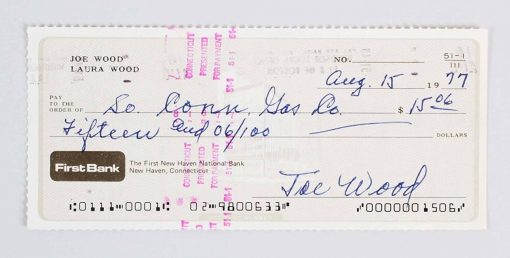 JOE WOOD
LAURA WOOD
NO.
51-1
111
Aug. 15 1977
PAY
TO THE
ORDER OF So. Conn Gas Co. $ 15 06
Fifteen and 06/100 DOLLARS
FirstBank
The First New Haven National Bank
New Haven, Connecticut
Joe Wood
CONNECTICUT
PRESENTED
FOR PAYMENT
51-1
CONNECTICUT
PRESENTED
FOR PAYMENT
51-1
0111 0001 02 9800633 0000001506